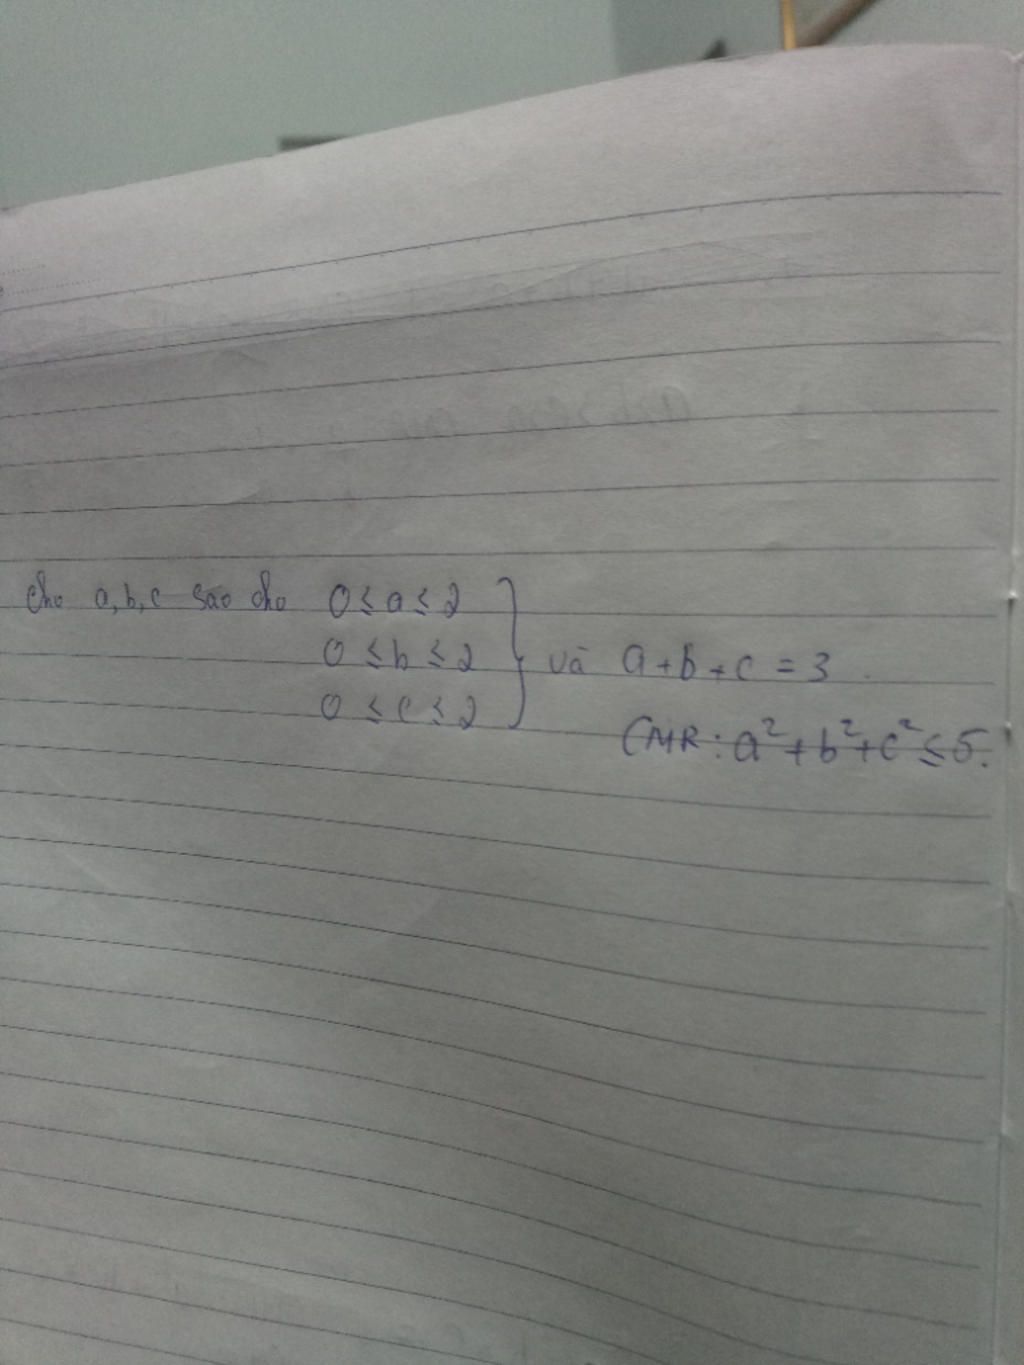 Cho a, b, c sao cho 0 ≤ a ≤ 2
0 ≤ b ≤ 2 và a + b + c = 3.
0 ≤ c ≤ 2
CMR: a² + b² + c² ≤ 5.